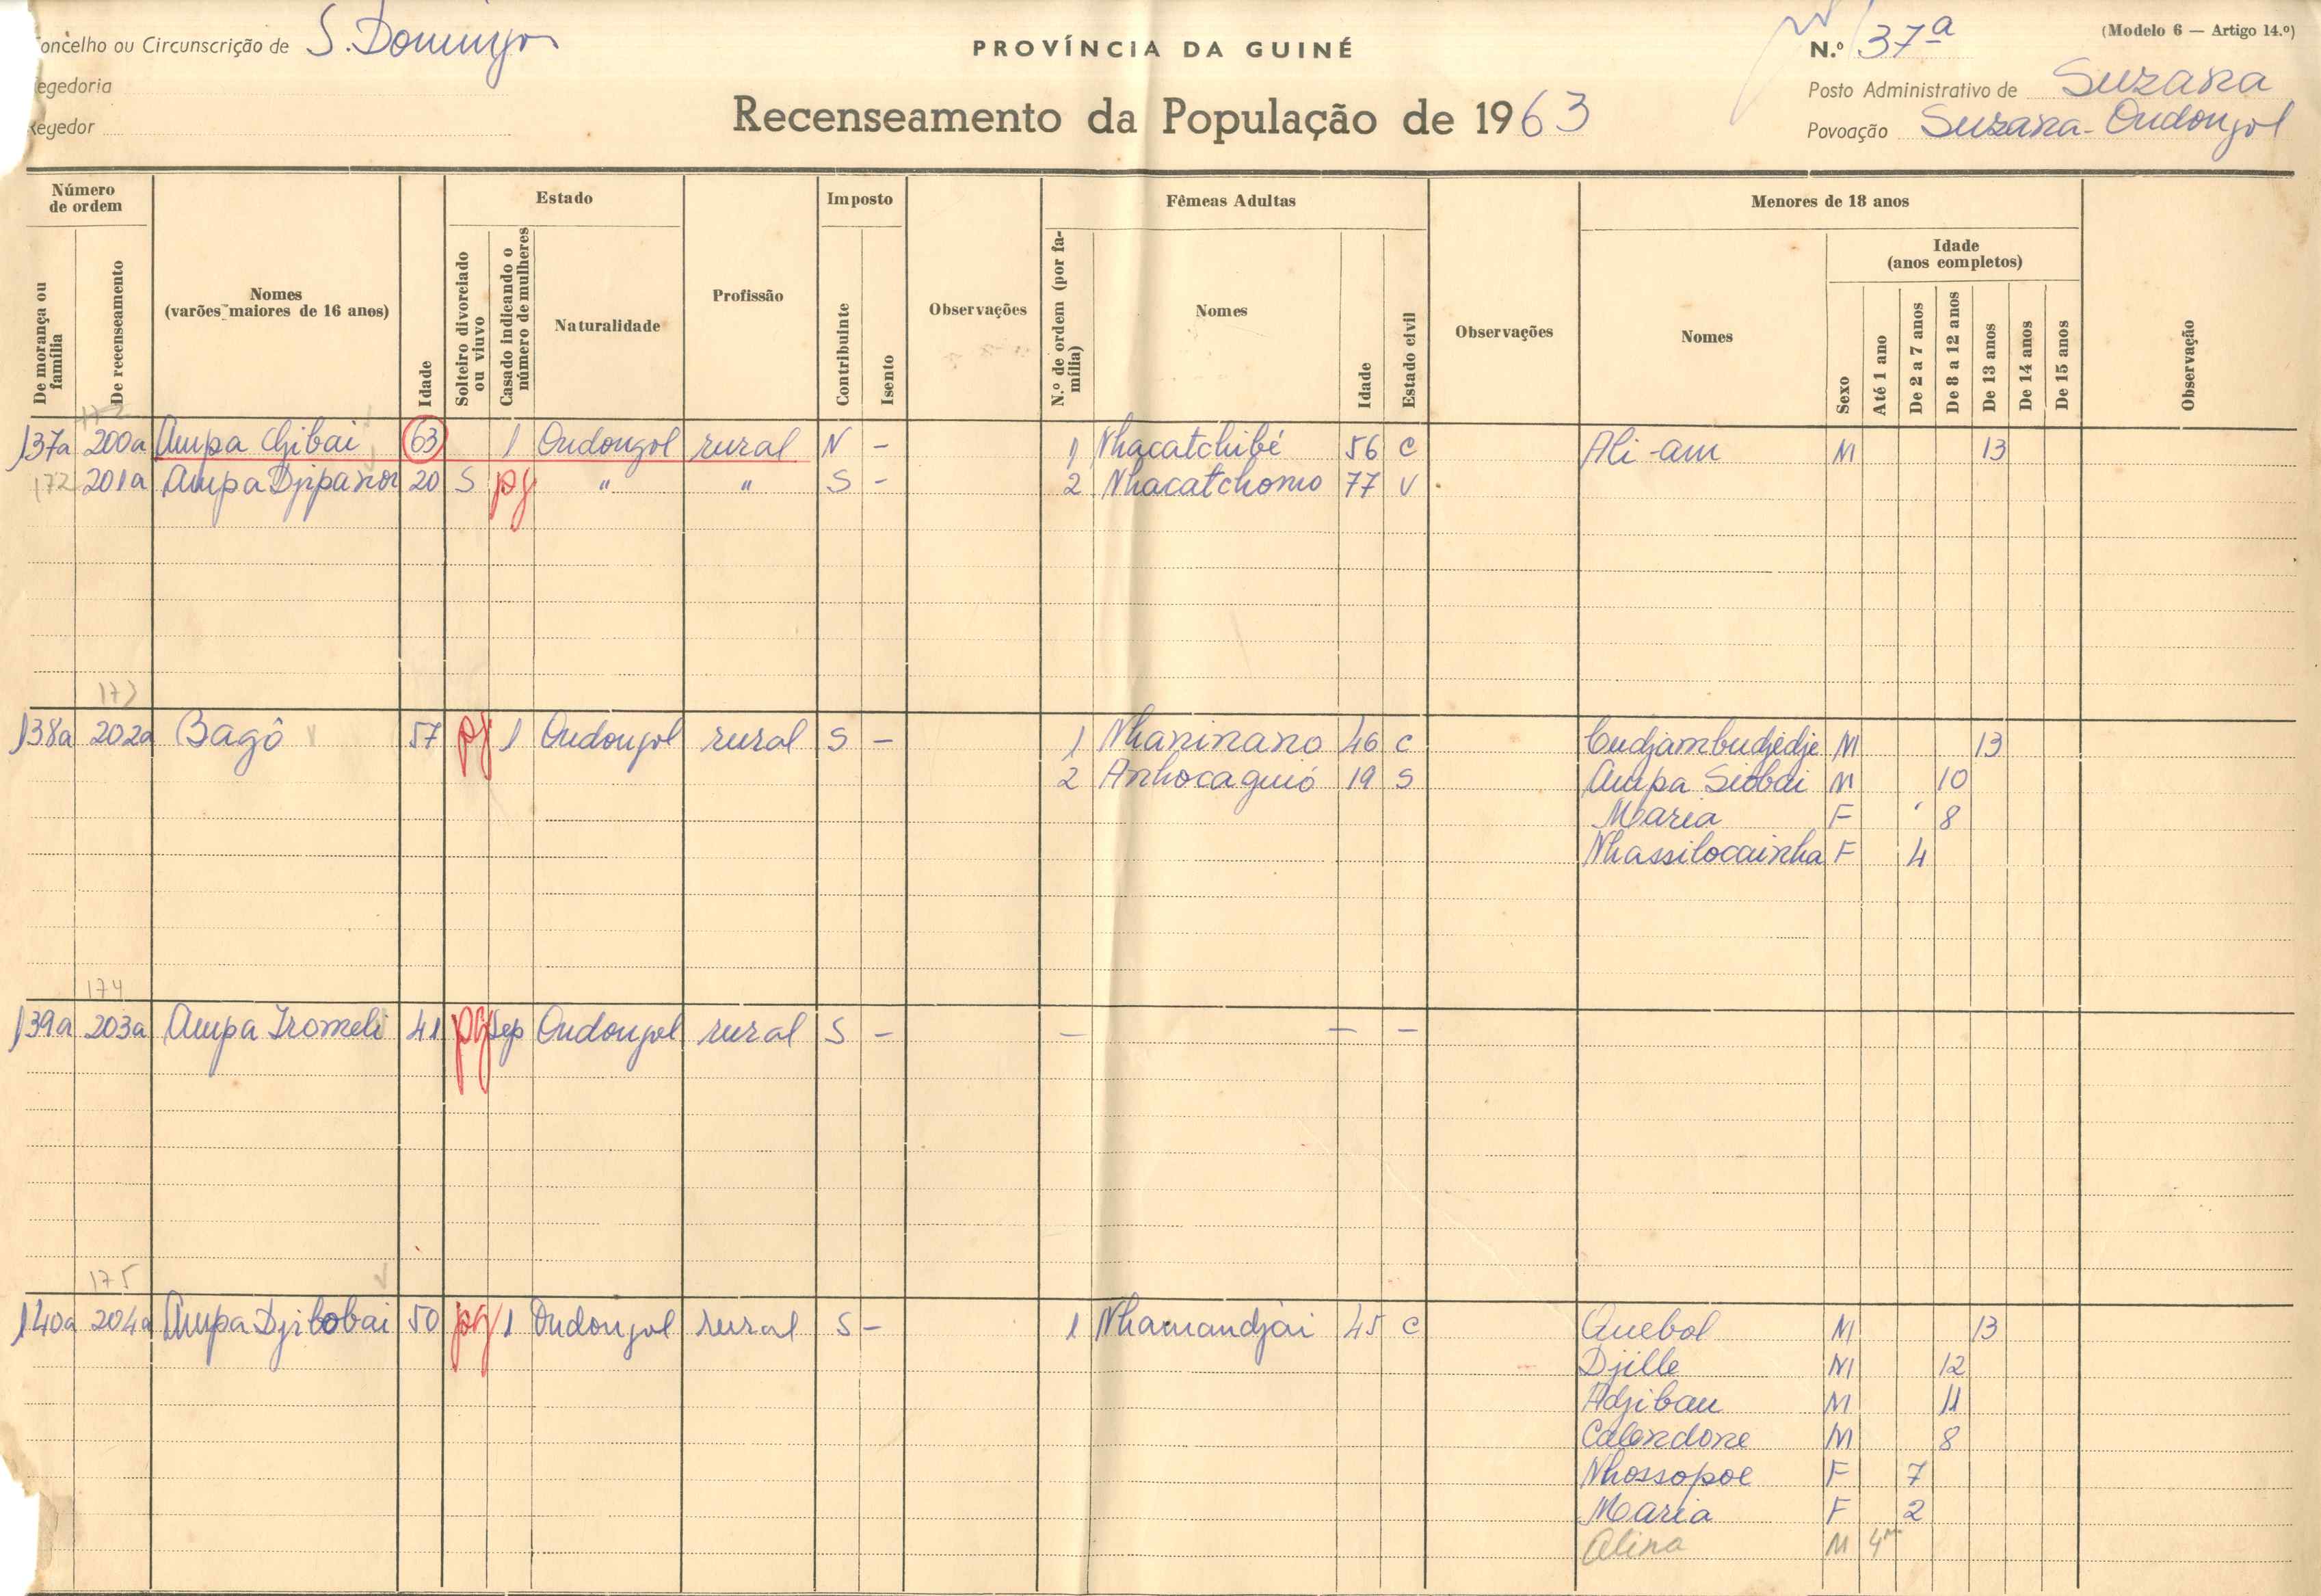 oncelho ou Circunscrição de S. Domingos
PROVÍNCIA DA GUINÉ
N.º 37ª
(Modelo 6 — Artigo 14.º)
egedoria
Recenseamento da População de 1963
Posto Administrativo de Suzana
egedor
Povoação Suzana - Oudongol
Número de ordem
Estado
Imposto
Fêmeas Adultas
Menores de 18 anos
De morança ou família
De recenseamento
Nomes (varões maiores de 16 anos)
Idade
Solteiro divorciado ou viuvo
Casado indicando o número de mulheres
Naturalidade
Profissão
Contribuinte
Isento
Observações
N.º de ordem (por família)
Nomes
Idade
Estado civil
Observações
Nomes
Sexo
Idade (anos completos)
Até 1 ano
De 2 a 7 anos
De 8 a 12 anos
De 13 anos
De 14 anos
De 15 anos
Observação
137a 200a Ampa Gibai 63 1 Oudongol rural N - 1 Nhacatchibé 56 C Ali-am M 13
172 201a Ampa Djipanor 20 S pg " " S - 2 Nhacatchomo 77 V
173
138a 202a Bagô 57 pg 1 Oudongol rural S - 1 Nhaninano 46 C Cudjambudjedje M 13
2 Anhocaguió 19 S Ampa Siobai M 10
Maria F 8
Nhassilocainha F 4
174
139a 203a Ampa Iromeli 41 pg Sep Oudongol rural S - - - -
175
140a 204a Ampa Djilobai 50 pg 1 Oudongol rural S - 1 Nhamandjai 45 C Quebol M 13
Djille M 12
Adjibau M 11
Calendone M 8
Nhossopoe F 7
Maria F 2
Alina M 4m